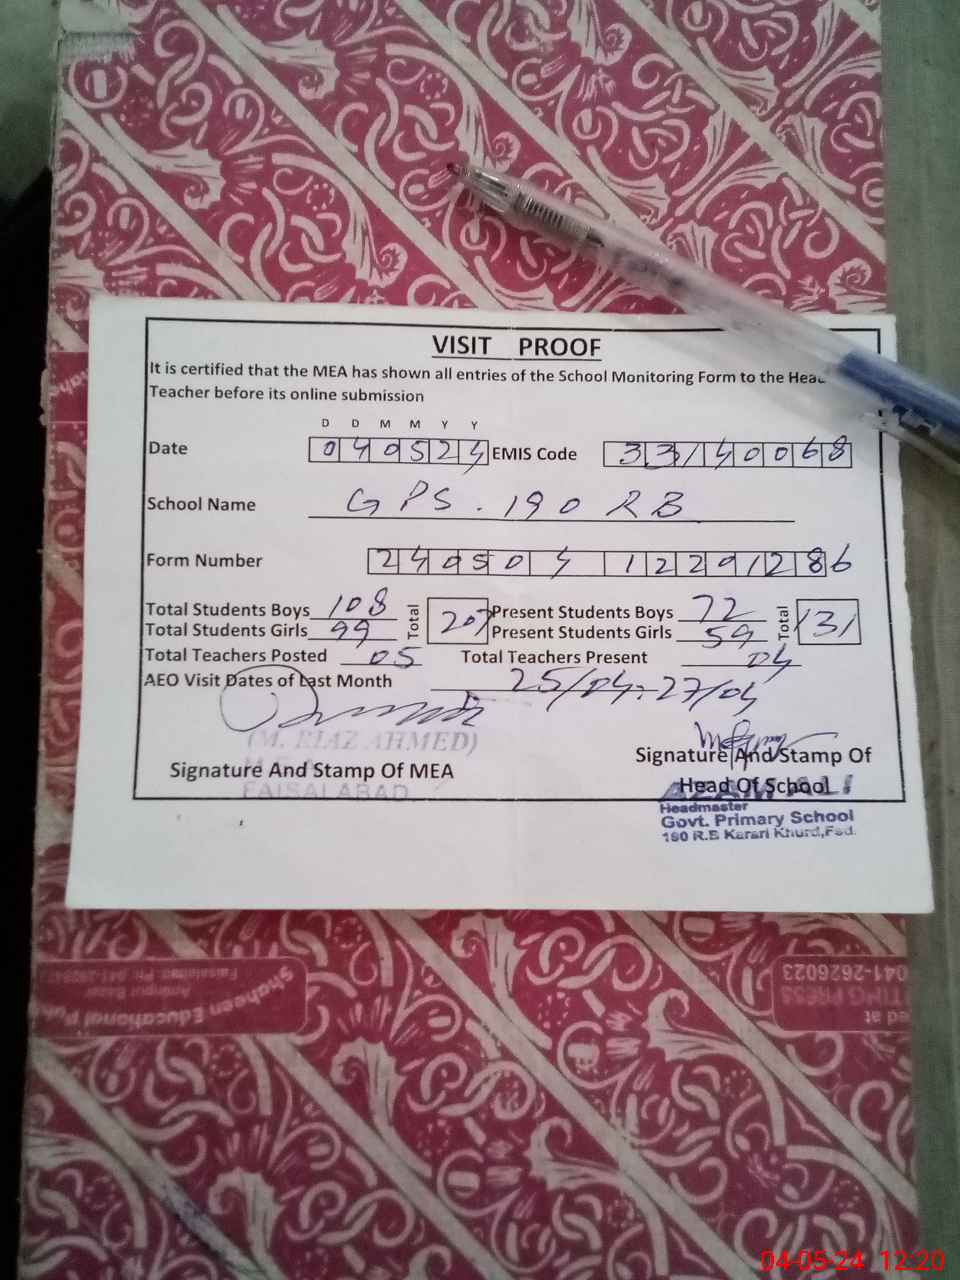 VISIT PROOF
It is certified that the MEA has shown all entries of the School Monitoring Form to the Head
Teacher before its online submission
D D M M Y Y
Date 040524 EMIS Code 33140068
School Name GPS. 190 RB
Form Number 240504 12291286
Total Students Boys 108 Total 207 Present Students Boys 72 Total 131
Total Students Girls 99 Present Students Girls 59
Total Teachers Posted 05 Total Teachers Present 04
AEO Visit Dates of Last Month 25/04, 27/04
(M. RIAZ AHMED)
M.E.A
FAISALABAD.
Signature And Stamp Of MEA
Signature And Stamp Of
Head Of School
AZAM ALI
Headmaster
Govt. Primary School
190 R.B Karari Khurd,Fsd.
Shaheen Educational
Aminpur Bazar
Faisalabad. Ph: 041-
ed at
TING PRESS
041-2626023
04-05-24 12:20